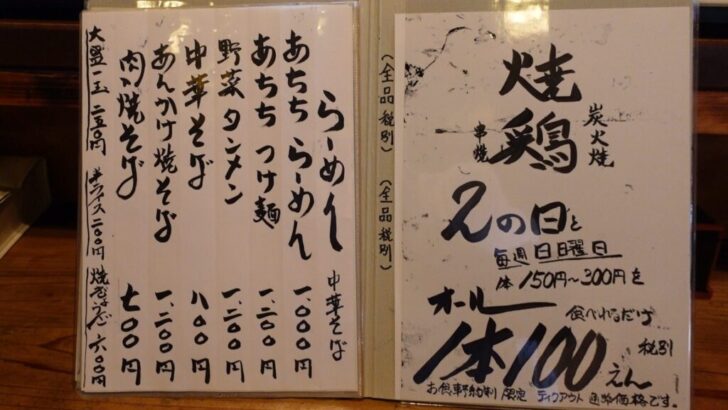 炭火焼
焼鶏
串焼
2の日と
毎週日曜日
1本150円〜300円を
オール
食べれるだけ
1本100えん
税別
(全品税別)
(全品税別)
らーめん 中華そば
あちちらーめん 一、〇〇〇円
あちちつけ麺 一、二〇〇円
野菜タンメン 一、二〇〇円
中華そば 八〇〇円
あんかけ焼そば 一、二〇〇円
肉焼そば 七〇〇円
大盛一玉 二五〇円 半ライス 二〇〇円 焼ぎょうざ 六〇〇円